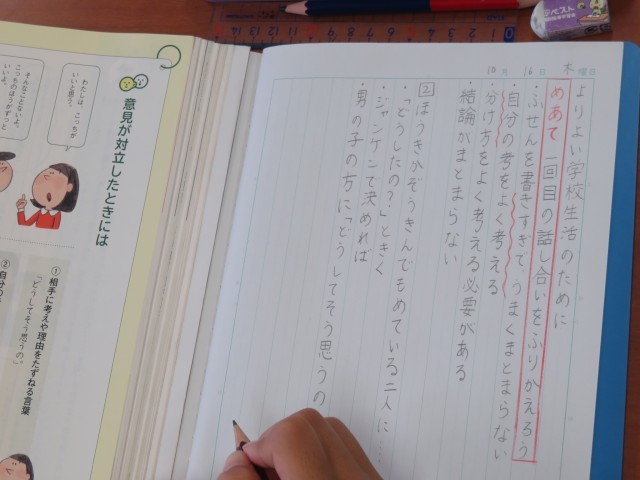 10月16日木曜日
よりよい学校生活のために
めあて 一回目の話し合いをふりかえろう
・ふせんを書きすぎて、うまくまとまらない
・自分の考をよく考える
・分け方をよく考える必要がある
・結論がまとまらない
2 ほうきかぞうきんでもめている二人に……
・「どうしたの?」ときく
・ジャンケンで決めれば
・男の子の方に「どうしてそう思うの
意見が対立したときには
わたしは、こっちが
いいと思う。
そんなことないよ。
こっちのほうがずっと
いいよ。
① 相手に考えや理由をたずねる言葉
「どうしてそう思うの。」
② 自分の